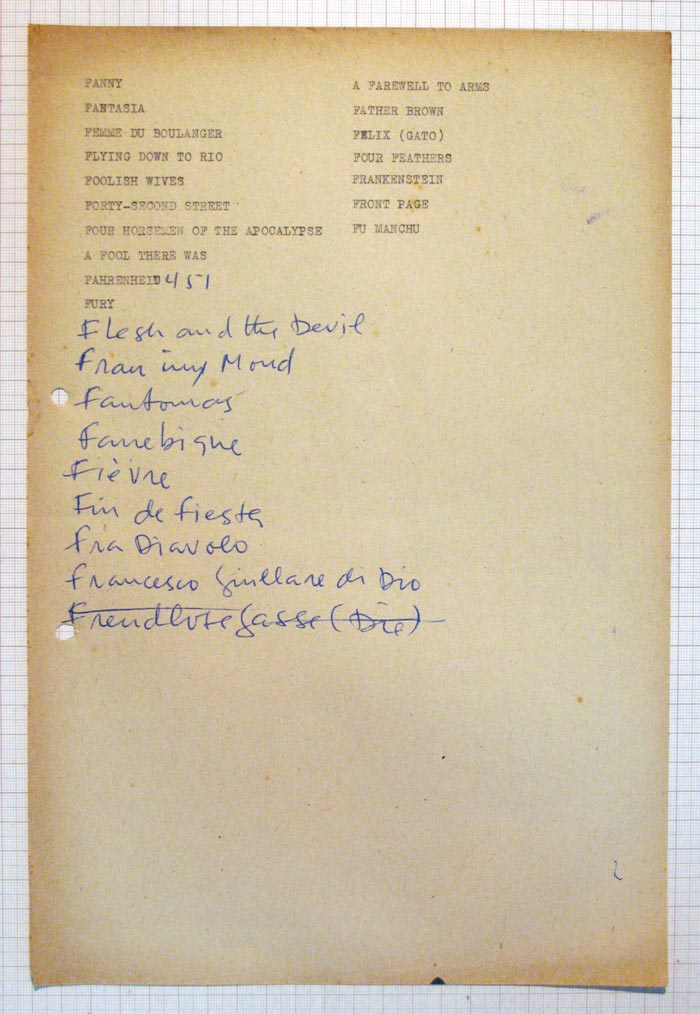 FANNY
FANTASIA
FEMME DU BOULANGER
FLYING DOWN TO RIO
FOOLISH WIVES
FORTY-SECOND STREET
FOUR HORSEMEN OF THE APOCALYPSE
A FOOL THERE WAS
FAHRENHEID 451
FURY
Flesh and the Devil
Frau im Mond
Fantomas
Farrebique
Fièvre
Fin de fiesta
Fra Diavolo
Francesco Giullare di Dio
Freudlose Gasse (Die)
A FAREWELL TO ARMS
FATHER BROWN
FELIX (GATO)
FOUR FEATHERS
FRANKENSTEIN
FRONT PAGE
FU MANCHU